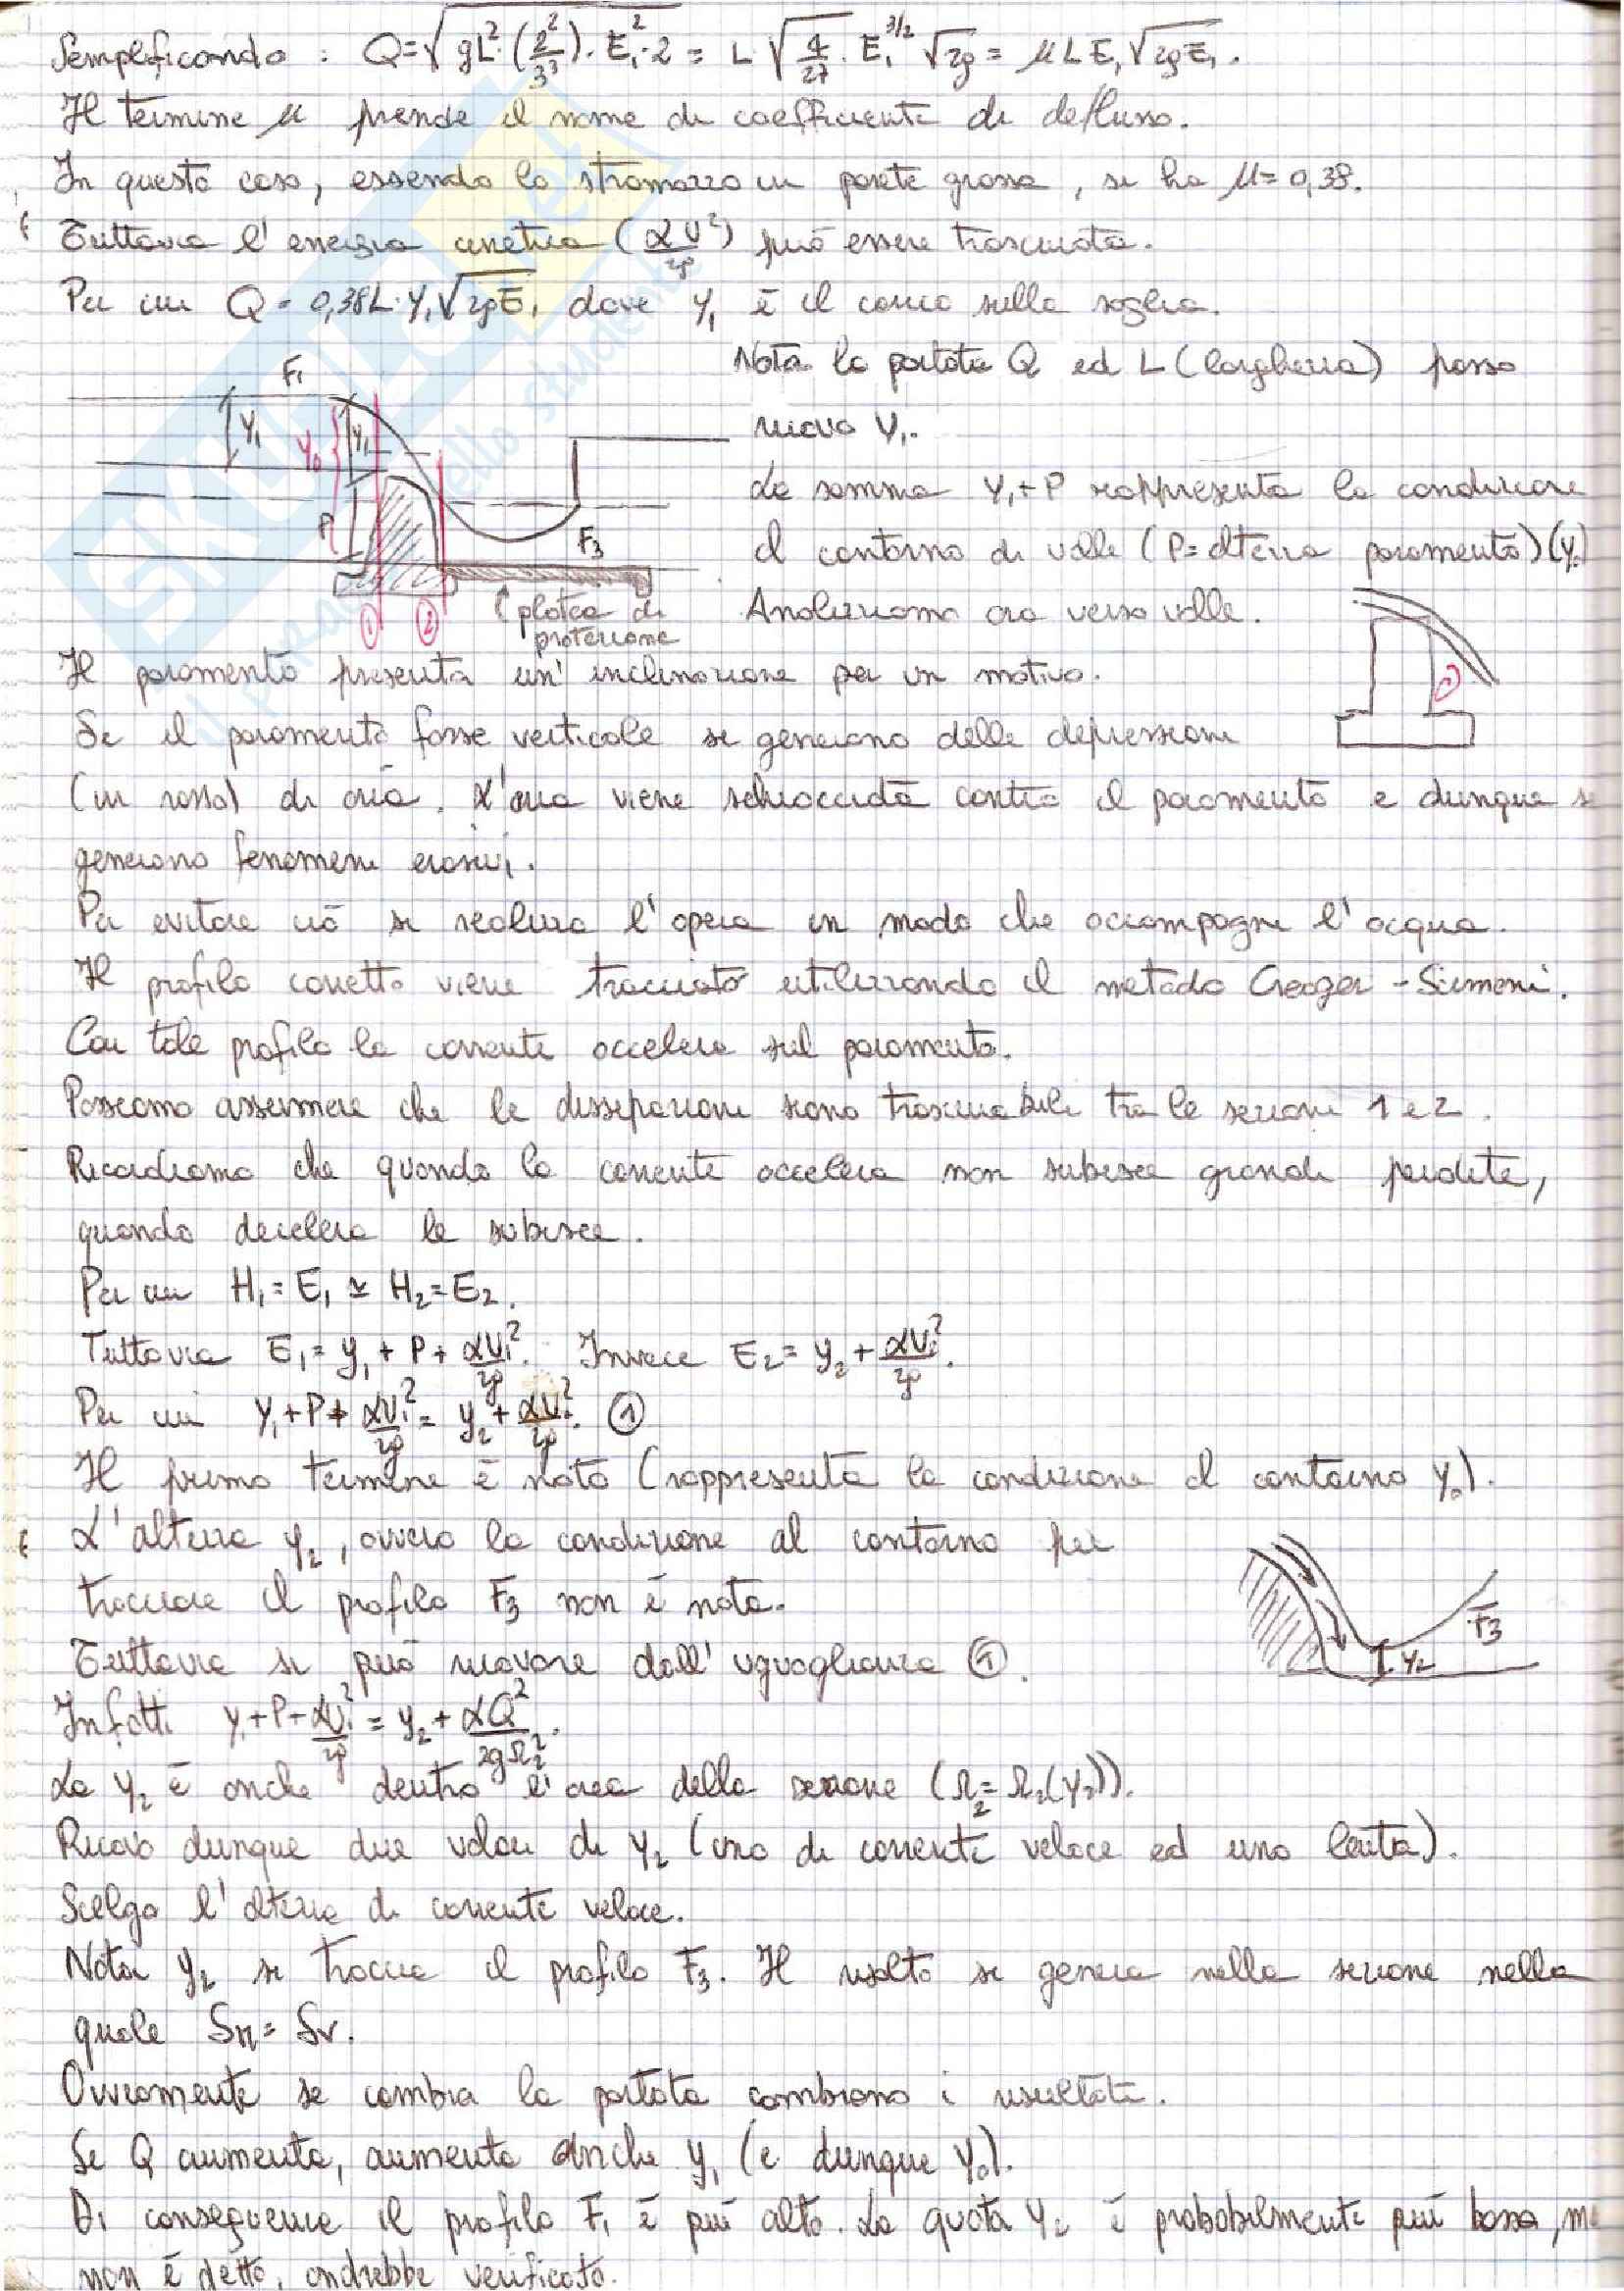 Semplificando : Q=√gL²·(2²/3³)·E₁²·2 = L√4/27·E₁^3/2 √2g = μLE₁√2gE₁.
Il termine μ prende il nome di coefficiente di deflusso.
In questo caso, essendo lo stramazzo in parete grossa, si ha μ=0,38.
Tuttavia l'energia cinetica (αV²/2g) può essere trascurata.
Per cui Q=0,38L·Y₁√2gE₁ dove Y₁ è il carico sulla soglia.
Nota la portata Q ed L (larghezza) posso
ricavo Y₁.
La somma Y₁+P rappresenta la condizione
al contorno di valle (P=altezza paramento)(Y₀)
Analizziamo ora verso valle.
F₁
Y₁
Y₀
Y₁
P
F₃
1
2
platea di
protezione
Il paramento presenta un'inclinazione per un motivo.
Se il paramento fosse verticale si generano delle depressioni
(in rosso) di aria. L'aria viene schiacciata contro il paramento e dunque si
generano fenomeni erosivi.
Per evitare ciò si realizza l'opera in modo che accompagni l'acqua.
Il profilo corretto viene tracciato utilizzando il metodo Creager-Scimemi.
Con tale profilo la corrente accelera sul paramento.
Possiamo assumere che le dissipazioni siano trascurabili tra le sezioni 1 e 2.
Ricordiamo che quando la corrente accelera non subisce grandi perdite,
quando decelera le subisce.
Per cui H₁=E₁≃H₂=E₂.
Tuttavia E₁=y₁+P+αV₁²/2g. Invece E₂=y₂+αV₂²/2g.
Per cui Y₁+P+αV₁²/2g=y₂+αV₂²/2g. ①
Il primo termine è noto (rappresenta la condizione al contorno Y₀).
L'altezza y₂, ovvero la condizione al contorno per
tracciare il profilo F₃ non è nota.
Tuttavia si può ricavare dall'uguaglianza ①.
F₃
Y₂
Infatti Y₁+P+αV₁²/2g=y₂+αQ²/2gΩ₂².
La y₂ è anche dentro l'area della sezione (Ω₂=Ω₂(Y₂)).
Ricavo dunque due valori di y₂ (uno di corrente veloce ed uno lenta).
Scelgo l'altezza di corrente veloce.
Nota y₂ si traccia il profilo F₃. Il risalto si genera nella sezione nella
quale Sm=Sv.
Ovviamente se cambia la portata cambiano i risultati.
Se Q aumenta, aumenta anche y₁ (e dunque Y₀).
Di conseguenza il profilo F₁ è più alto. La quota Y₂ è probabilmente più bassa, ma
non è detto, andrebbe verificato.